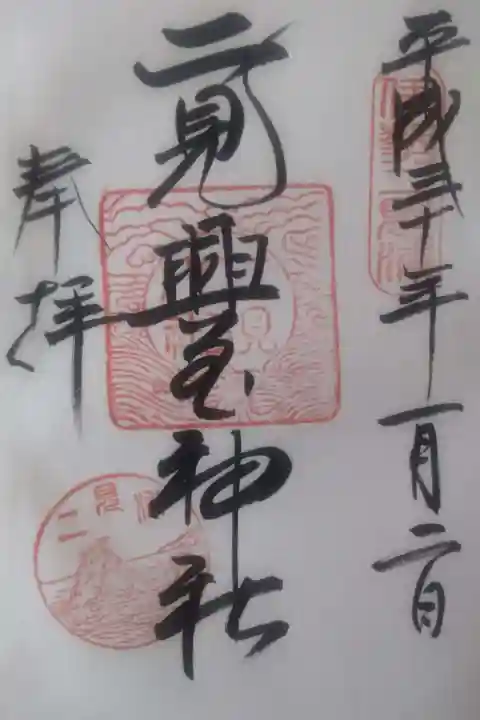 平成三十年一月二日
二見興玉神社
奉拝
二見